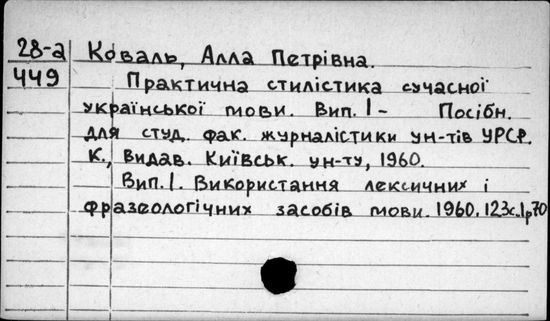 28-а Коваль, Алла Петрівна.
449 Практична стилістика сучасної
української мови. Вип. 1- Посібн.
для студ. фак. журналістики ун-тів УРСР.
К., Видав. Київськ. ун-ту, 1960.
Вип. 1. Використання лексичних і
фразеологічних засобів мови. 1960. 123с. 1р70